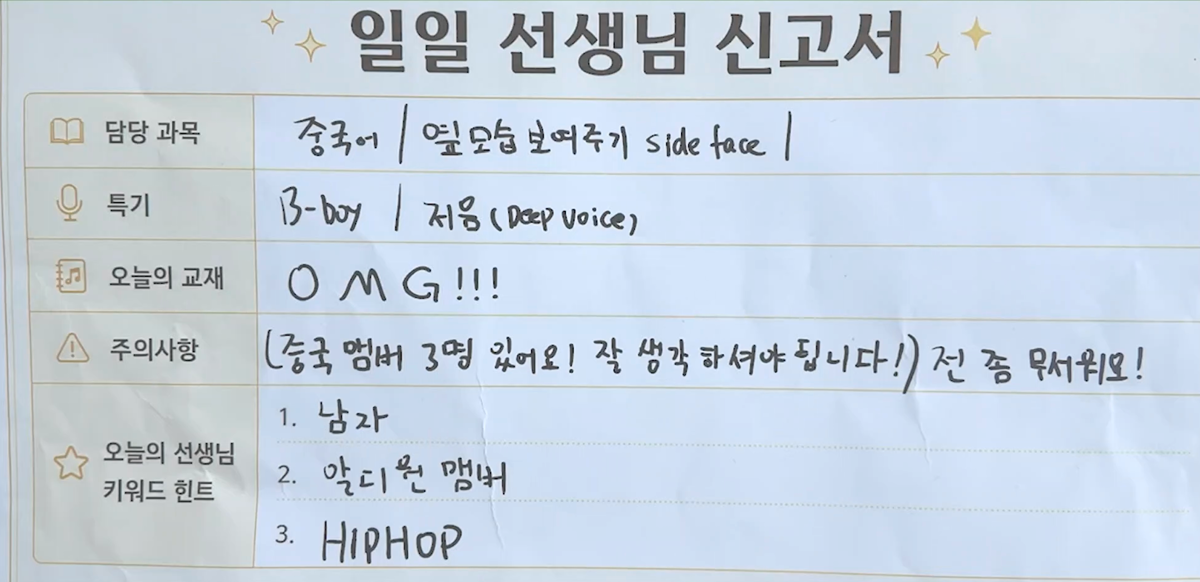 일일 선생님 신고서
담당 과목 중국어 / 옆모습 보여주기 side face /
특기 B-boy / 저음 (Deep voice)
오늘의 교재 OMG!!!
주의사항 (중국 멤버 3명 있어요! 잘 생각하셔야 됩니다!) 전 좀 무서워요!
오늘의 선생님
키워드 힌트
1. 남자
2. 알디원 맴버
3. HIPHOP